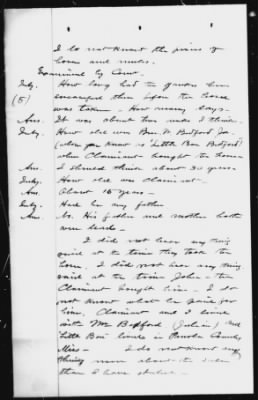 I do not know the prices of
horses and mules.
Examined by Court.
Inty. How long had the Yankees been
(5) encamped there before the horse
was taken - How many days -
Ans. It was about two weeks I think.
Inty. How old was Ben. W. Bedford Jr.
(whom you know as "Little Ben Bedford")
when Claimant bought the horse
Ans. I should think about 30 years.
Inty. How old was Claimant -
Ans. About 15 years -
Inty. Had he any father
Ans. No. His father and mother both
were dead -
I did not hear any thing
said at the time they took the
horse. I did not hear any thing
said at the time John the
Claimant bought him - I do
not know what he paid for
him. Claimant and I lived
with Mr Bedford (Julian) and
Little Ben lived in Panola County
Miss - I do not know any
thing more about the
than I have stated -